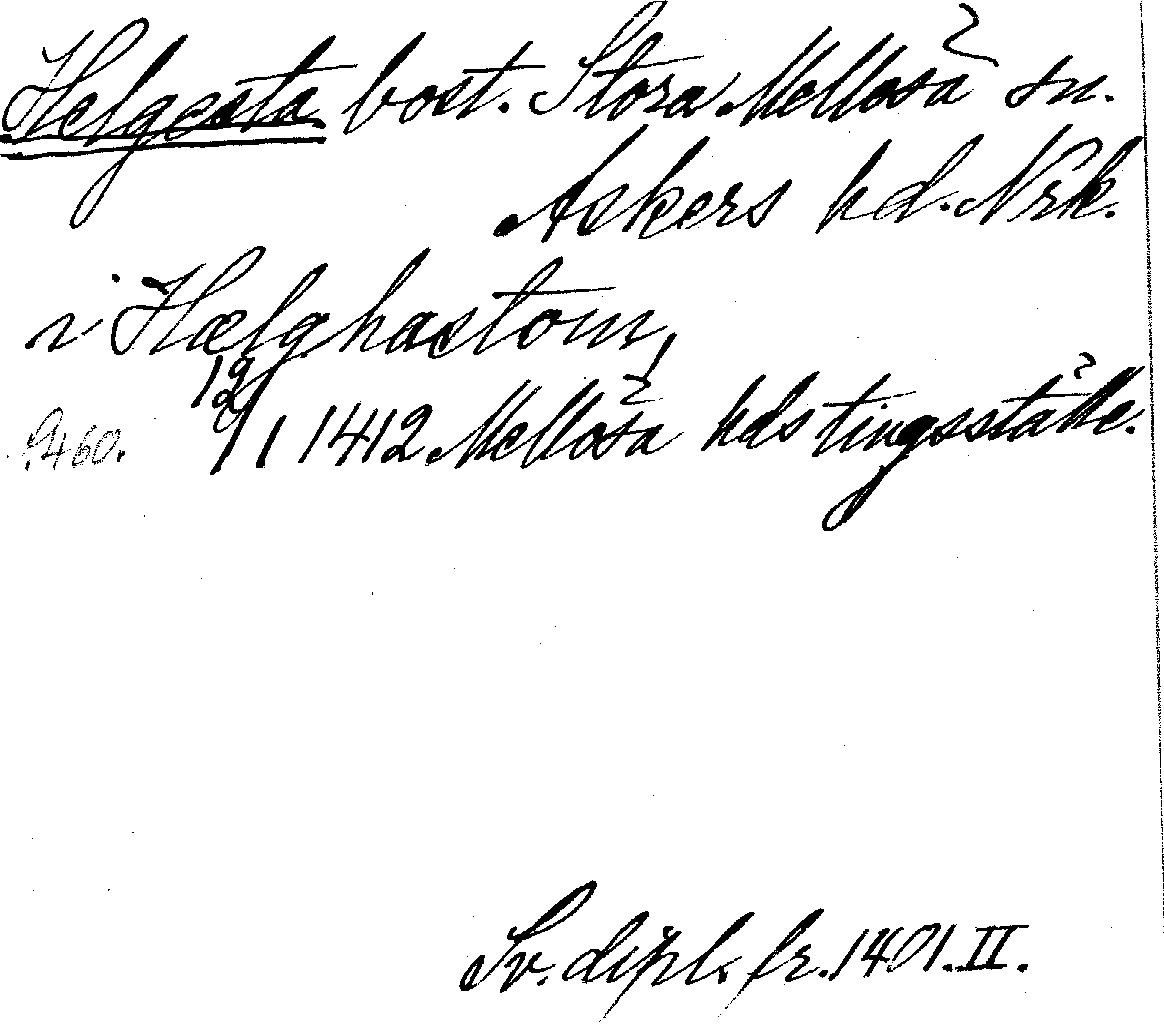 Helgesta bost. Stora Mellösa sn.
Askers hd. Nrk.
i Hælghastom,
S. 460. 12/1 1412. Mellösa hds tingsställe.
Sv. dipl. fr. 1401. II.